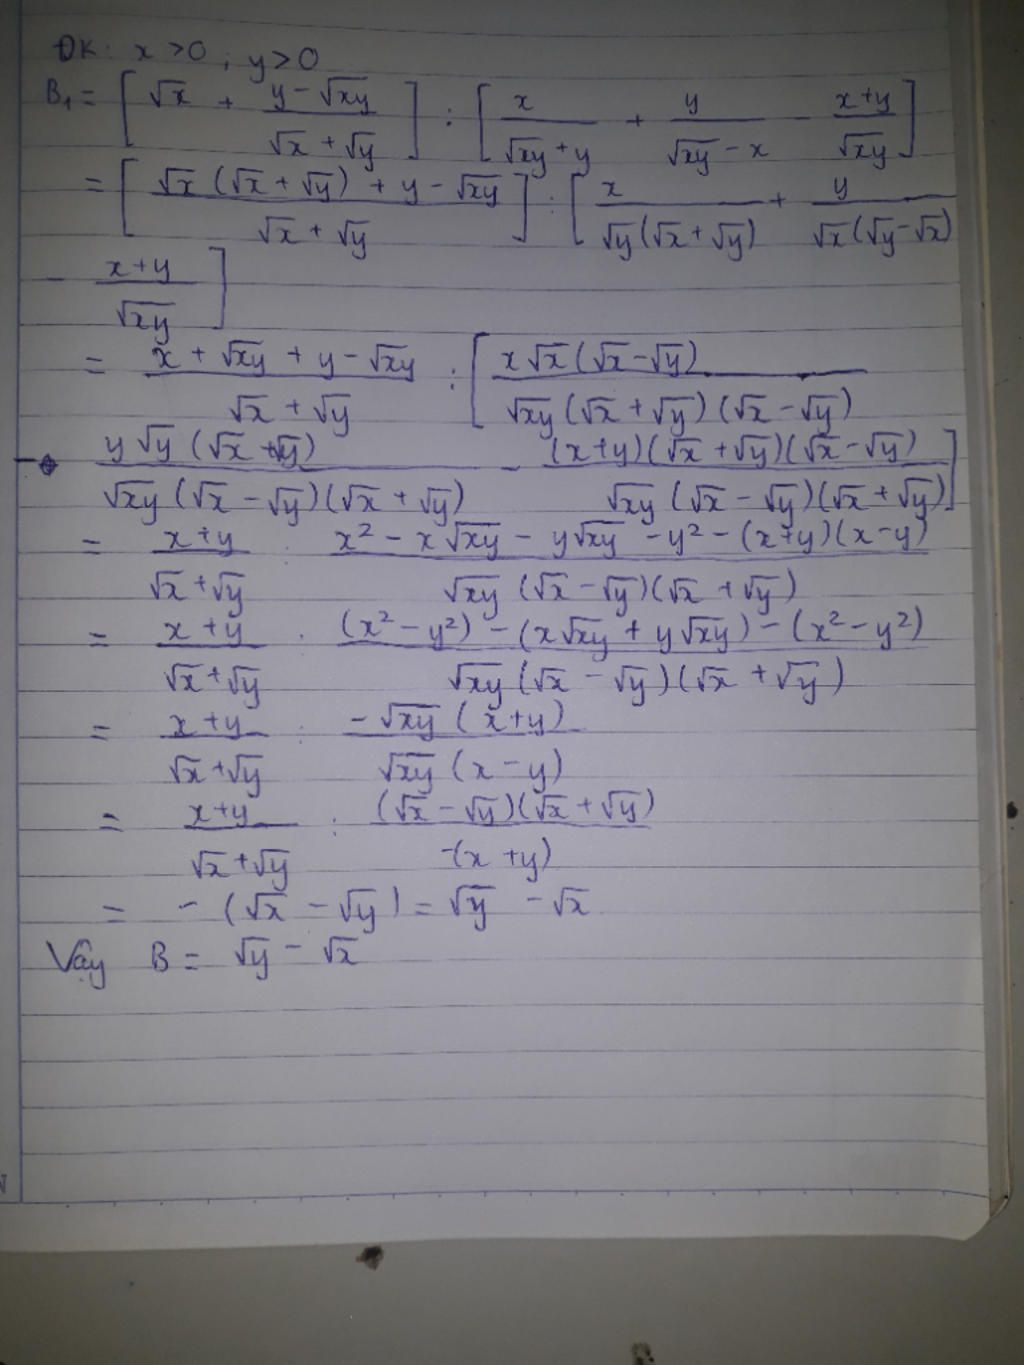 ĐK: x >0 ; y>0
B₁ = [√x + (y - √xy)/(√x + √y)] : [x/(√xy + y) + y/(√xy - x) - (x+y)/√xy]
= [(√x (√x + √y) + y - √xy)/(√x + √y)] : [x/(√y(√x + √y)) + y/(√x(√y - √x))
- (x+y)/√xy]
= (x + √xy + y - √xy)/(√x + √y) : [x√x(√x - √y)/(√xy (√x + √y)(√x - √y))
- y√y (√x + √y)/(√xy (√x - √y)(√x + √y)) - (x+y)(√x + √y)(√x - √y)/(√xy (√x - √y)(√x + √y))]
= (x+y)/(√x + √y) : (x² - x√xy - y√xy - y² - (x+y)(x-y))/(√xy (√x - √y)(√x + √y))
= (x+y)/(√x + √y) : ((x² - y²) - (x√xy + y√xy) - (x² - y²))/(√xy (√x - √y)(√x + √y))
= (x+y)/(√x + √y) : -√xy (x+y)/(√xy (x - y))
= (x+y)/(√x + √y) . (√x - √y)(√x + √y)/(-(x + y))
= - (√x - √y) = √y - √x
Vậy B = √y - √x